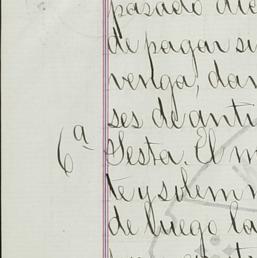 pasado
de pagar su
venga, dan
ses de anti
6ª Sesta. El m
te y solem
de luego la